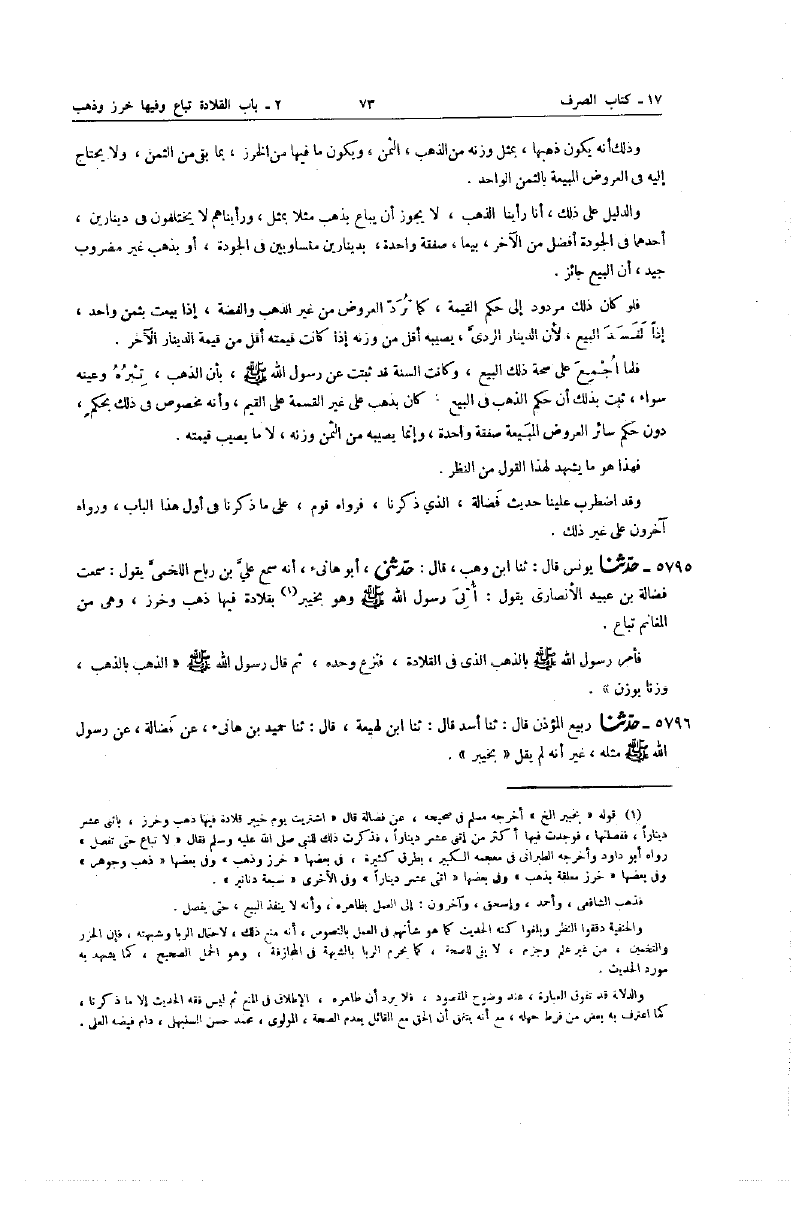 ١٧ ـ كتاب الصرف ٧٣ ٢ ـ باب القلادة تباع وفيها خرز وذهب
وذلك أنه يكون ذهبها ، بمثل وزنه من الذهب ، الثمن ، ويكون ما فيها من الخرز ، بما بقى من الثمن ، ولا يحتاج
إليه فى العروض المبيعة بالثمن الواحد .
والدليل على ذلك ، أنا رأينا الذهب ، لا يجوز أن يباع بذهب مثلا بمثل ، ورأيناهم لا يختلفون فى دينارين ،
أحدهما فى الجودة أفضل من الآخر ، بيعا ، صفقة واحدة ، بدينارين متساويين فى الجودة ، أو بذهب غير مضروب
جيد ، أن البيع جائز .
فلو كان ذلك مردود إلى حكم القيمة ، كما تُرَدّ العروض من غير الذهب والفضة ، إذا بيعت بثمن واحد ،
إذاً لَفَسَدَ البيع ، لأن الدينار الردىّ ، يصيبه أقل من وزنه إذا كانت قيمته أقل من قيمة الدينار الآخر .
فلما أُجْمِعَ على صحة ذلك البيع ، وكانت السنة قد ثبتت عن رسول الله ﷺ ، بأن الذهب ، تِبْرُهُ وعينه
سواء ، ثبت بذلك أن حكم الذهب فى البيع : كان بذهب على غير القسمة على القيم ، وأنه مخصوص فى ذلك بحكم ،
دون حكم سائر العروض المَبِيعة صفقة واحدة ، وإنما يصيبه من الثمن وزنه ، لا ما يصيب قيمته .
فهذا هو ما يشهد لهذا القول من النظر .
وقد اضطرب علينا حديث فَضالة ، الذي ذكرنا ، فرواه قوم ، على ما ذكرنا فى أول هذا الباب ، ورواه
آخرون على غير ذلك .
٥٧٩٥ ـ حدثنا يونس قال : ثنا ابن وهب ، قال : حدثنى ، أبو هانىء ، أنه سمع علىّ بن رباح اللخمىّ يقول : سمعت
فضالة بن عبيد الأنصارى يقول : أُتِىَ رسول الله ﷺ وهو بخيبر(١) بقلادة فيها ذهب وخرز ، وهى من
المغانم تباع .
فأمر رسول الله ﷺ بالذهب الذى فى القلادة ، فنزع وحده ، ثم قال رسول الله ﷺ « الذهب بالذهب ،
وزنا بوزن » .
٥٧٩٦ ـ حدثنا ربيع المؤذن قال : ثنا أسد قال : ثنا ابن لهيعة ، قال : ثنا حميد بن هانىء ، عن فَضالة ، عن رسول
الله ﷺ مثله ، غير أنه لم يقل « بخيبر » .
(١) قوله « بخيبر الخ » أخرجه مسلم فى صحيحه ، عن فضالة قال « اشتريت يوم خيبر قلادة فيها ذهب وخرز ، باثنى عشر
ديناراً ، ففصلتها ، فوجدت فيها أكثر من إثنى عشر ديناراً ، فذكرت ذلك للنبي صلى الله عليه وسلم فقال « لا تباع حتى تفصل »
رواه أبو داود وأخرجه الطبرانى فى معجمه الكبير ، بطرق كثيرة ، فى بعضها « خرز وذهب » وفى بعضها « ذهب وجوهر »
وفى بعضها « خرز معلقة بذهب » وفى بعضها « اثنى عشر ديناراً » وفى الأخرى « سبعة دنانير » .
فذهب الشافعى ، وأحمد ، وإسحق ، وآخرون : إلى العمل بظاهره ، وأنه لا ينفذ البيع ، حتى يفصل .
والحنفية دققوا النظر وبلغوا كنه الحديث كما هو شأنهم فى العمل بالنصوص ، أنه منع ذلك ، لاحتمال الربا وشبهته ، فإن الحزر
والتخمين ، من غير علم وجزم ، لا يفى للصحة ، كما يحرم الربا بالشبهة فى المجازفة ، وهو الحمل الصحيح ، كما يشهد به
مورد الحديث .
والدلالة قد تفوق العبارة ، عند وضوح المقصود ، فلا يرد أن ظاهره ، الإطلاق فى المنع ثم ليس فقه الحديث إلا ما ذكرنا ،
كما اعترف به بعض من فرط جهله ، مع أنه يتفق أن الحق مع القائل بعدم الصحة ، المولوى ، محمد حسن السنبهلى ، دام فيضه العلى .